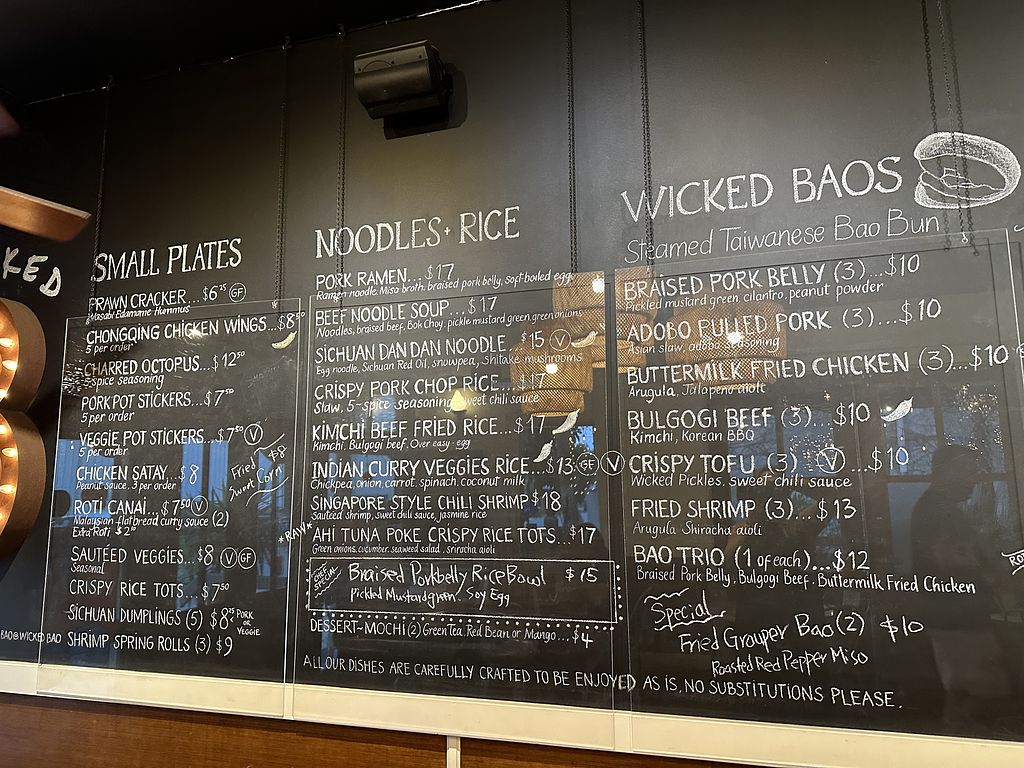 KED
SMALL PLATES
PRAWN CRACKER...$6²⁵ GF
Wasabi Edamame Hummus
CHONGQING CHICKEN WINGS...$8⁵⁰
5 per order
CHARRED OCTOPUS...$12⁵⁰
5-spice seasoning
PORK POT STICKERS...$7⁵⁰
5 per order
VEGGIE POT STICKERS...$7⁵⁰ V
5 per order
Fried $8
Sweet Corn
CHICKEN SATAY...$8
Peanut sauce, 3 per order
ROTI CANAI...$7⁵⁰ V
Malaysian flatbread curry sauce (2)
Extra Roti $2⁵⁰
SAUTÉED VEGGIES...$8 V GF
Seasonal
CRISPY RICE TOTS...$7⁵⁰
SICHUAN DUMPLINGS (5) $8²⁵ PORK OR VEGGIE
SHRIMP SPRING ROLLS (3) $9
BAO@WICKED BAO
NOODLES + RICE
PORK RAMEN...$17
Ramen noodle, Miso broth, braised pork belly, soft-boiled egg
BEEF NOODLE SOUP...$17
Noodles, braised beef, Bok Choy, pickle mustard green, green onions
SICHUAN DAN DAN NOODLE...$15 V
Egg noodle, Sichuan Red Oil, snowpea, Shitake mushrooms
CRISPY PORK CHOP RICE...$17
Slaw, 5-spice seasoning, sweet chili sauce
KIMCHI BEEF FRIED RICE...$17
Kimchi, Bulgogi beef, Over easy-egg
INDIAN CURRY VEGGIES RICE...$13 GF V
Chickpea, onion, carrot, spinach, coconut milk
SINGAPORE STYLE CHILI SHRIMP $18
Sauteed shrimp, sweet chili sauce, jasmine rice
*RAW* AHI TUNA POKE CRISPY RICE TOTS...$17
Green onions, cucumber, seaweed salad, sriracha aioli
CHEF SPECIAL Braised Porkbelly Rice Bowl $15
Pickled Mustardgreen. Soy Egg
DESSERT-MOCHI (2) Green Tea, Red Bean, or Mango...$4
WICKED BAOS
Steamed Taiwanese Bao Bun
BRAISED PORK BELLY (3)...$10
Pickled mustard green, cilantro, peanut powder
ADOBO PULLED PORK (3)...$10
Asian slaw, adobo seasoning
BUTTERMILK FRIED CHICKEN (3)...$10
Arugula, Jalapeño aioli
BULGOGI BEEF (3)...$10
Kimchi, Korean BBQ
CRISPY TOFU (3) V...$10
Wicked Pickles, sweet chili sauce
FRIED SHRIMP (3)...$13
Arugula, Shiracha aioli
BAO TRIO (1 of each)...$12
Braised Pork Belly, Bulgogi Beef, Buttermilk Fried Chicken
Special
Fried Grouper Bao (2) $10
Roasted Red Pepper Miso
ALL OUR DISHES ARE CAREFULLY CRAFTED TO BE ENJOYED AS IS, NO SUBSTITUTIONS PLEASE.